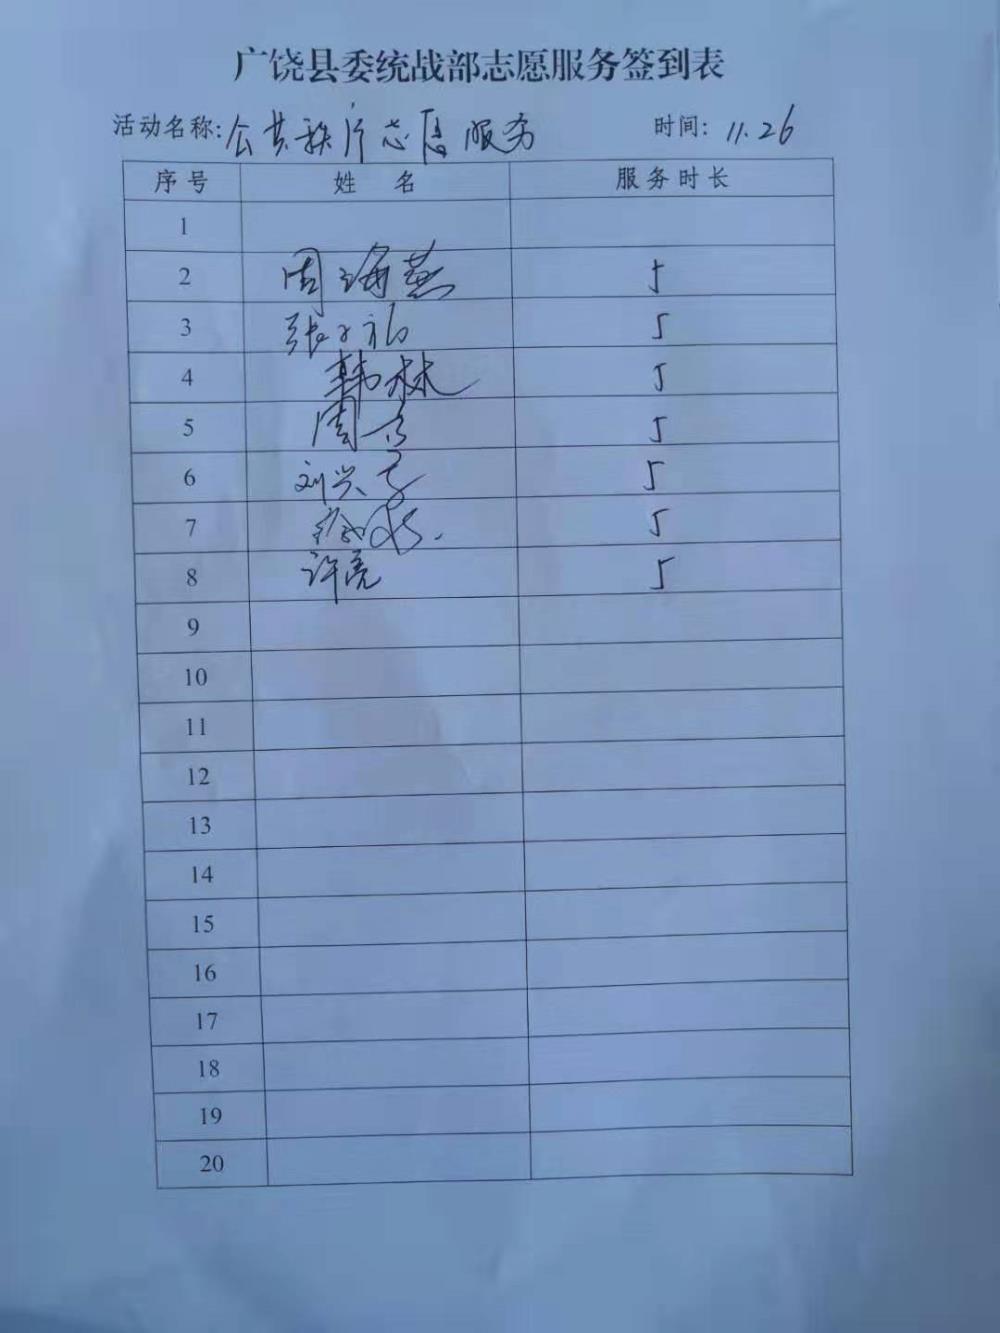 广饶县委统战部志愿服务签到表
活动名称: 公共秩序志愿服务 时间: 11.26
序号 姓名 服务时长
1
2 周海燕 5
3 张 5
4 韩林 5
5 周 5
6 刘兴 5
7 5
8 许亮 5
9
10
11
12
13
14
15
16
17
18
19
20